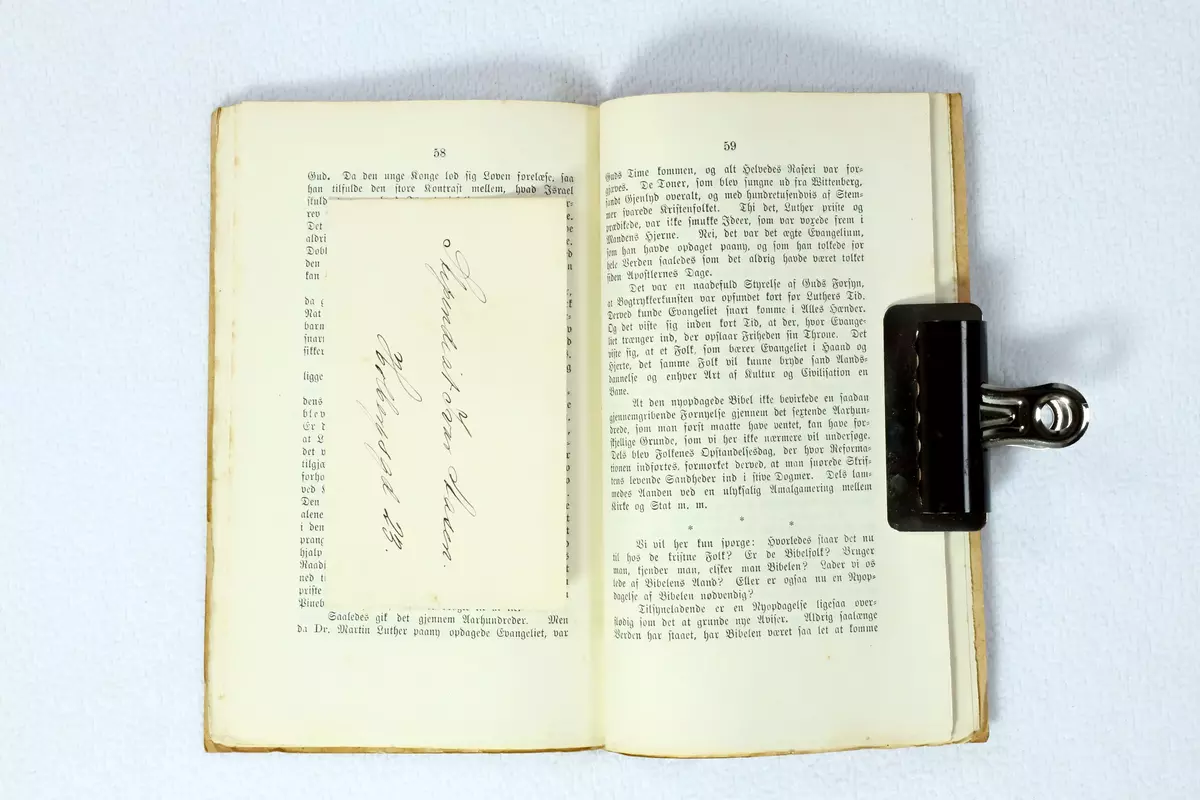 58
Gud. Da den unge Konge lod sig Loven forelæse, saa
han tilfulde den store Kontrast mellem, hvad Israel
rev
Det
aldri
den
kan
da
barn
snart
sikker
ligge
dens
blev
Er d
at L
det v
tilgja
forho
ved
Den
alene
i den
pranc
hjalp
Raadi
ned ti
priste
Pineb
Saaledes gik det gjennem Aarhundreder. Men
da Dr. Martin Luther paany opdagede Evangeliet, var
Holbergsgd 28.
59
Guds Time kommen, og alt Helvedes Raseri var for-
gjæves. De Toner, som blev sungne ud fra Wittenberg,
fandt Gjenlyd overalt, og med hundretusendvis af Stem-
mer svarede Kristenfolket. Thi det, Luther priste og
prædikede, var ikke smukke Ideer, som var voxede frem i
Mandens Hjerne. Nei, det var det ægte Evangelium,
som han havde opdaget paany, og som han tolkede for
hele Verden saaledes som det aldrig havde været tolket
siden Apostlernes Dage.
Det var en naadefuld Styrelse af Guds Forsyn,
at Bogtrykkerkunsten var opfundet kort før Luthers Tid.
Derved kunde Evangeliet snart komme i Alles Hænder.
Og det viste sig inden kort Tid, at der, hvor Evange-
liet trænger ind, der opslaar Friheden sin Throne. Det
viste sig, at et Folk, som bærer Evangeliet i Haand og
Hjerte, det samme Folk vil kunne bryde sand Aands-
dannelse og enhver Art af Kultur og Civilisation en
Bane.
At den nyopdagede Bibel ikke bevirkede en saadan
gjennemgribende Fornyelse gjennem det sextende Aarhun-
drede, som man først maatte have ventet, kan have for-
skjellige Grunde, som vi her ikke nærmere vil undersøge.
Dels blev Folkenes Opstandelsesdag, der hvor Reforma-
tionen indførtes, formørket derved, at man snørede Skrif-
tens levende Sandheder ind i stive Dogmer. Dels lam-
medes Aanden ved en ulyksalig Amalgamering mellem
Kirke og Stat m. m.
* * *
Vi vil her kun spørge: Hvorledes staar det nu
til hos de kristne Folk? Er de Bibelfolk? Bruger
man, kjender man, elsker man Bibelen? Lader vi os
lede af Bibelens Aand? Eller er ogsaa nu en Nyop-
dagelse af Bibelen nødvendig?
Tilsyneladende er en Nyopdagelse ligesaa over-
flødig som det at grunde nye Aviser. Aldrig saalænge
Verden har staaet, har Bibelen været saa let at komme